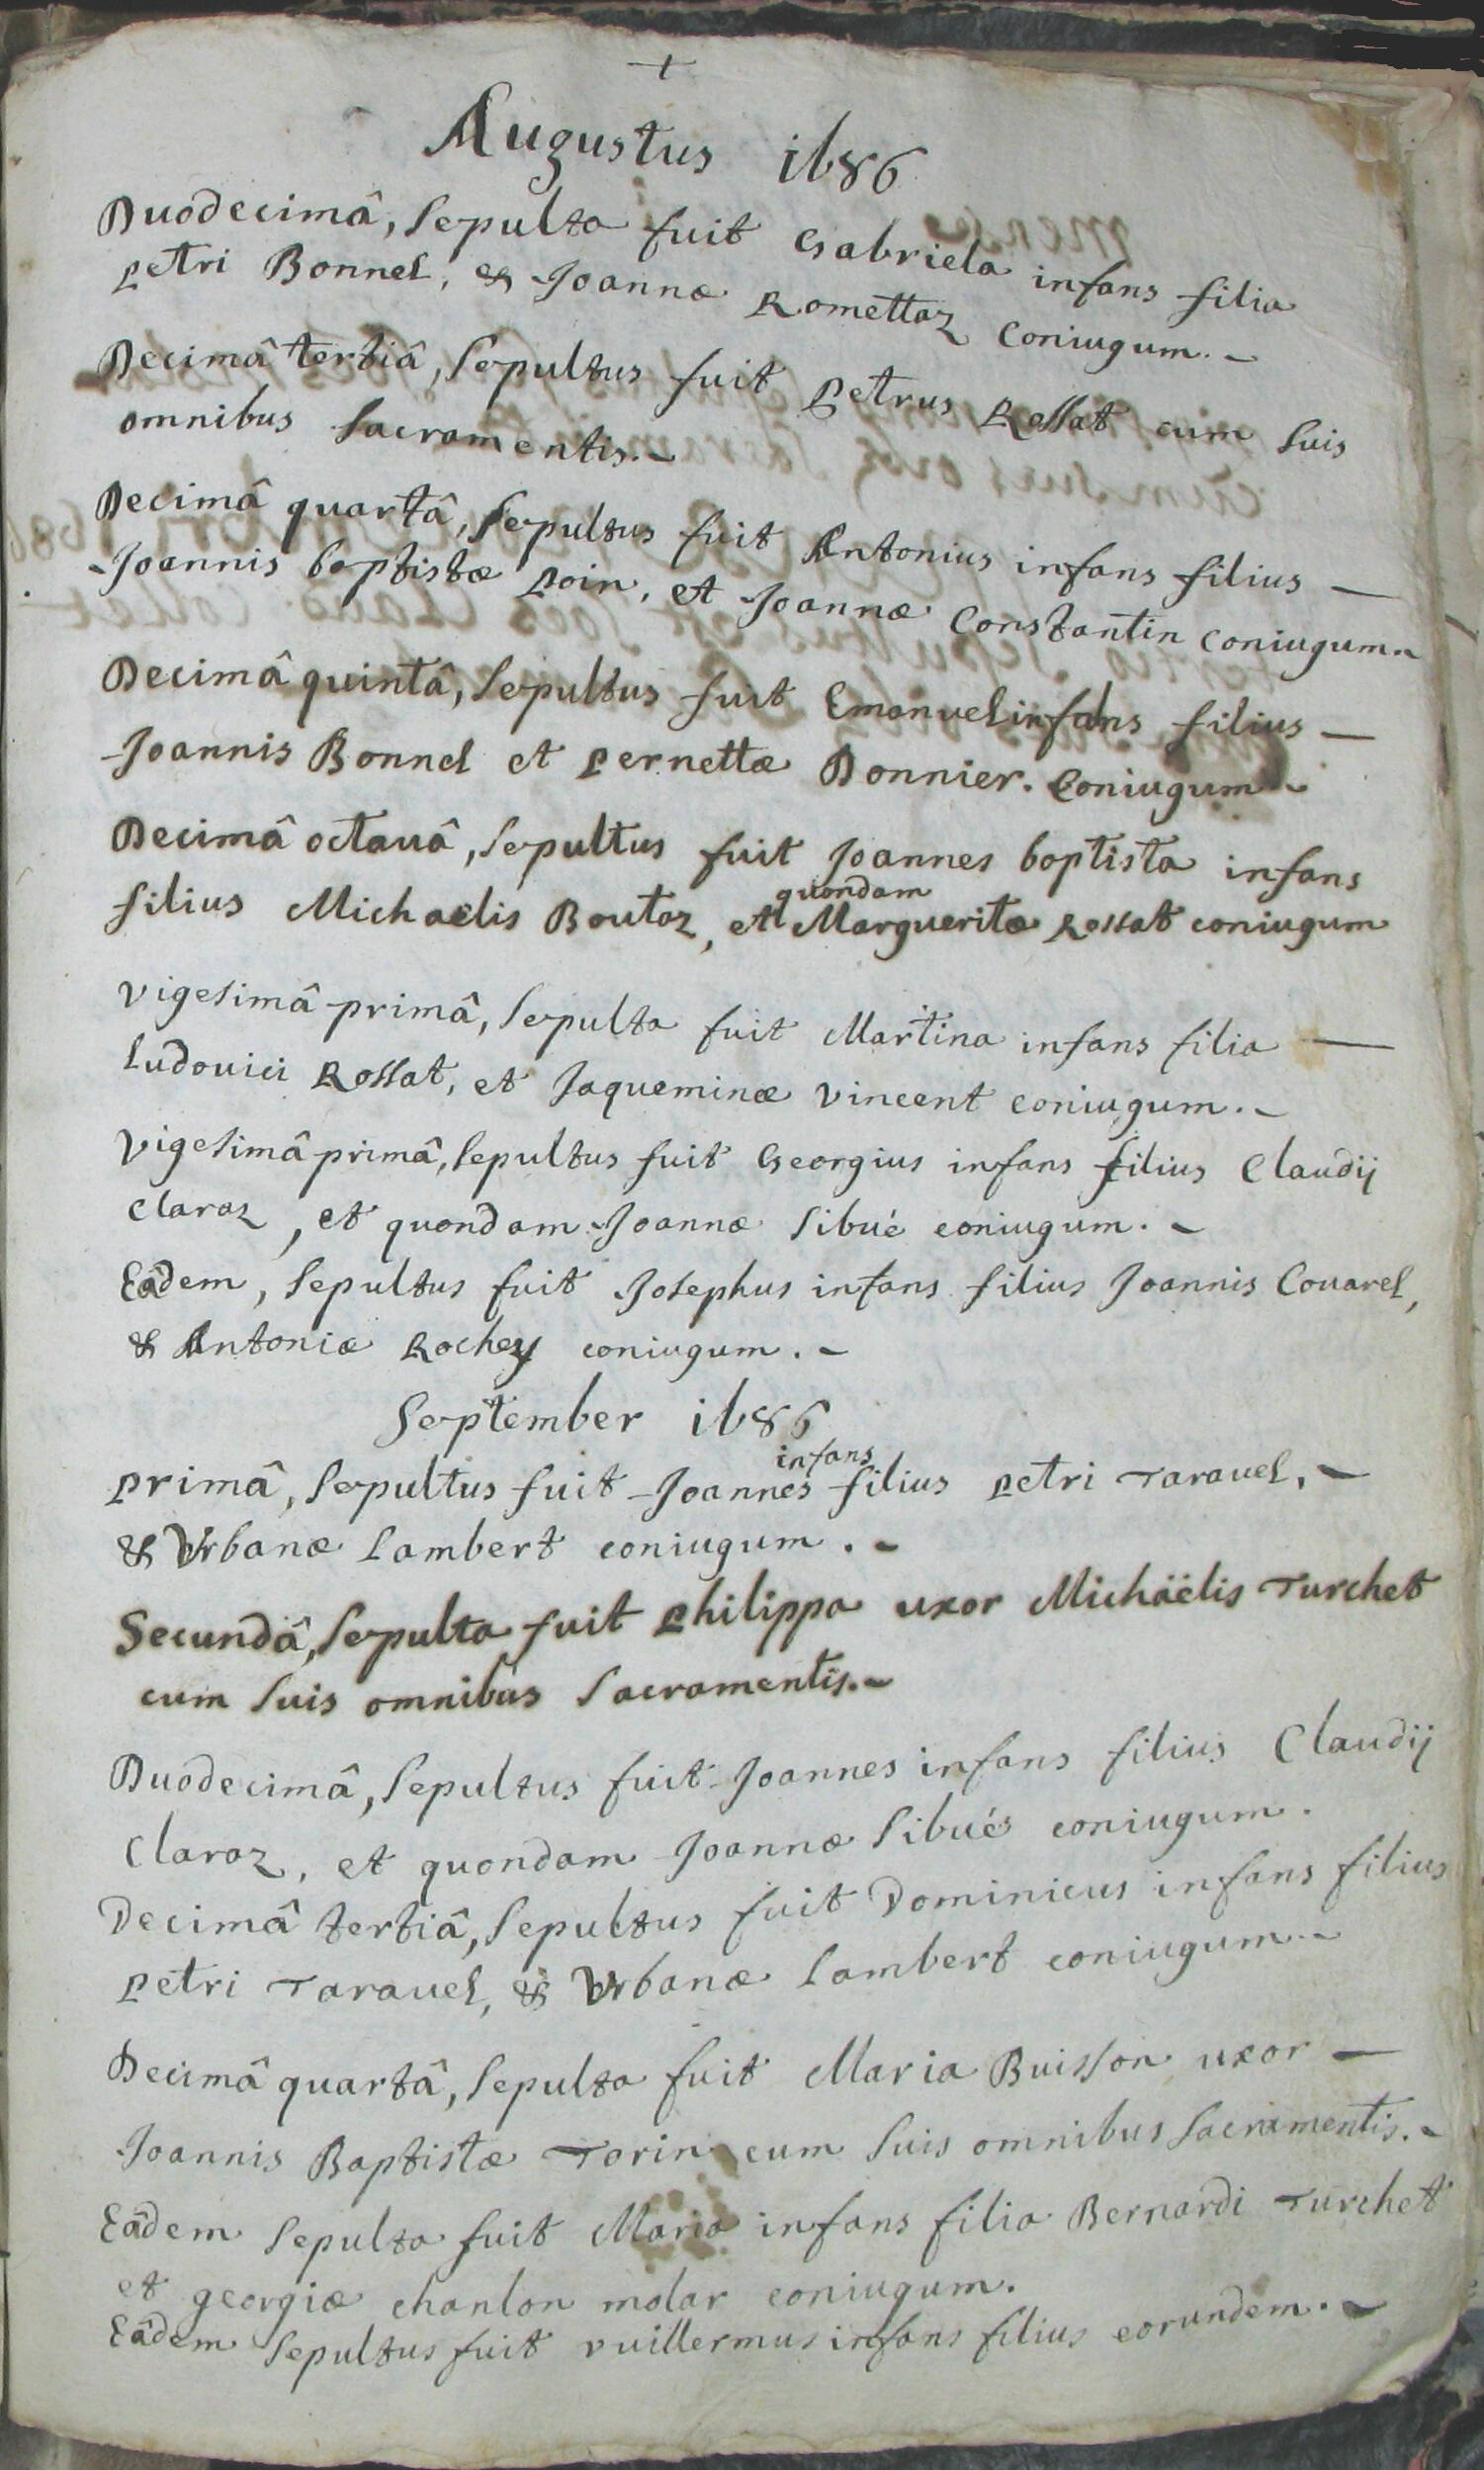 +
Augustus 1686
Duodecimâ, Sepulta fuit Gabriela infans filia
Petri Bonnel, & Joannæ Romettaz Coniugum.-
Decimâ tertiâ, Sepultus fuit Petrus Rossat cum suis
omnibus Sacramentis.-
Decimâ quartâ, Sepultus fuit Antonius infans filius —
Joannis baptistæ Poin, et Joannæ Constantin coniugum
Decimâ quintâ, Sepultus fuit Emanuel infans filius —
Joannis Bonnel et Pernettæ Donnier. Coniugum -
Decimâ octauâ, Sepultus fuit Joannes baptista infans
quondam
filius Michaelis Boutaz, et Margueritæ Rossat coniugum
Vigesimâ primâ, Sepulta fuit Martina infans filia —
Ludouici Rossat, et Jaqueminæ Vincent coniugum.-
Vigesimâ primâ, Sepultus fuit Georgius infans filius Claudij
Claraz, et quondam Joannæ Sibué coniugum.-
Eâdem, Sepultus fuit Josephus infans filius Joannis Couarel,
& Antoniæ Rochey coniugum.-
September 1686
infans
Primâ, Sepultus fuit Joannes filius Petri Tarauel,-
& Vrbanæ Lambert coniugum.-
Secundâ, Sepulta fuit Philippa uxor Michäelis Turchet
cum suis omnibus Sacramentis.-
Duodecimâ, Sepultus fuit Joannes infans filius Claudij
Claraz, et quondam Joannæ Sibués coniugum.
Decimâ tertiâ, Sepultus fuit Dominicus infans filius
Petri Tarauel, & Vrbanæ Lambert coniugum.-
Decimâ quartâ, Sepulta fuit Maria Buisson uxor —
Joannis Baptistæ Torin cum suis omnibus Sacramentis.-
Eâdem Sepulta fuit Maria infans filia Bernardi Turchet
et georgiæ chanlon molar coniugum.
Eâdem Sepultus fuit vuillermus infans filius eorundem.-